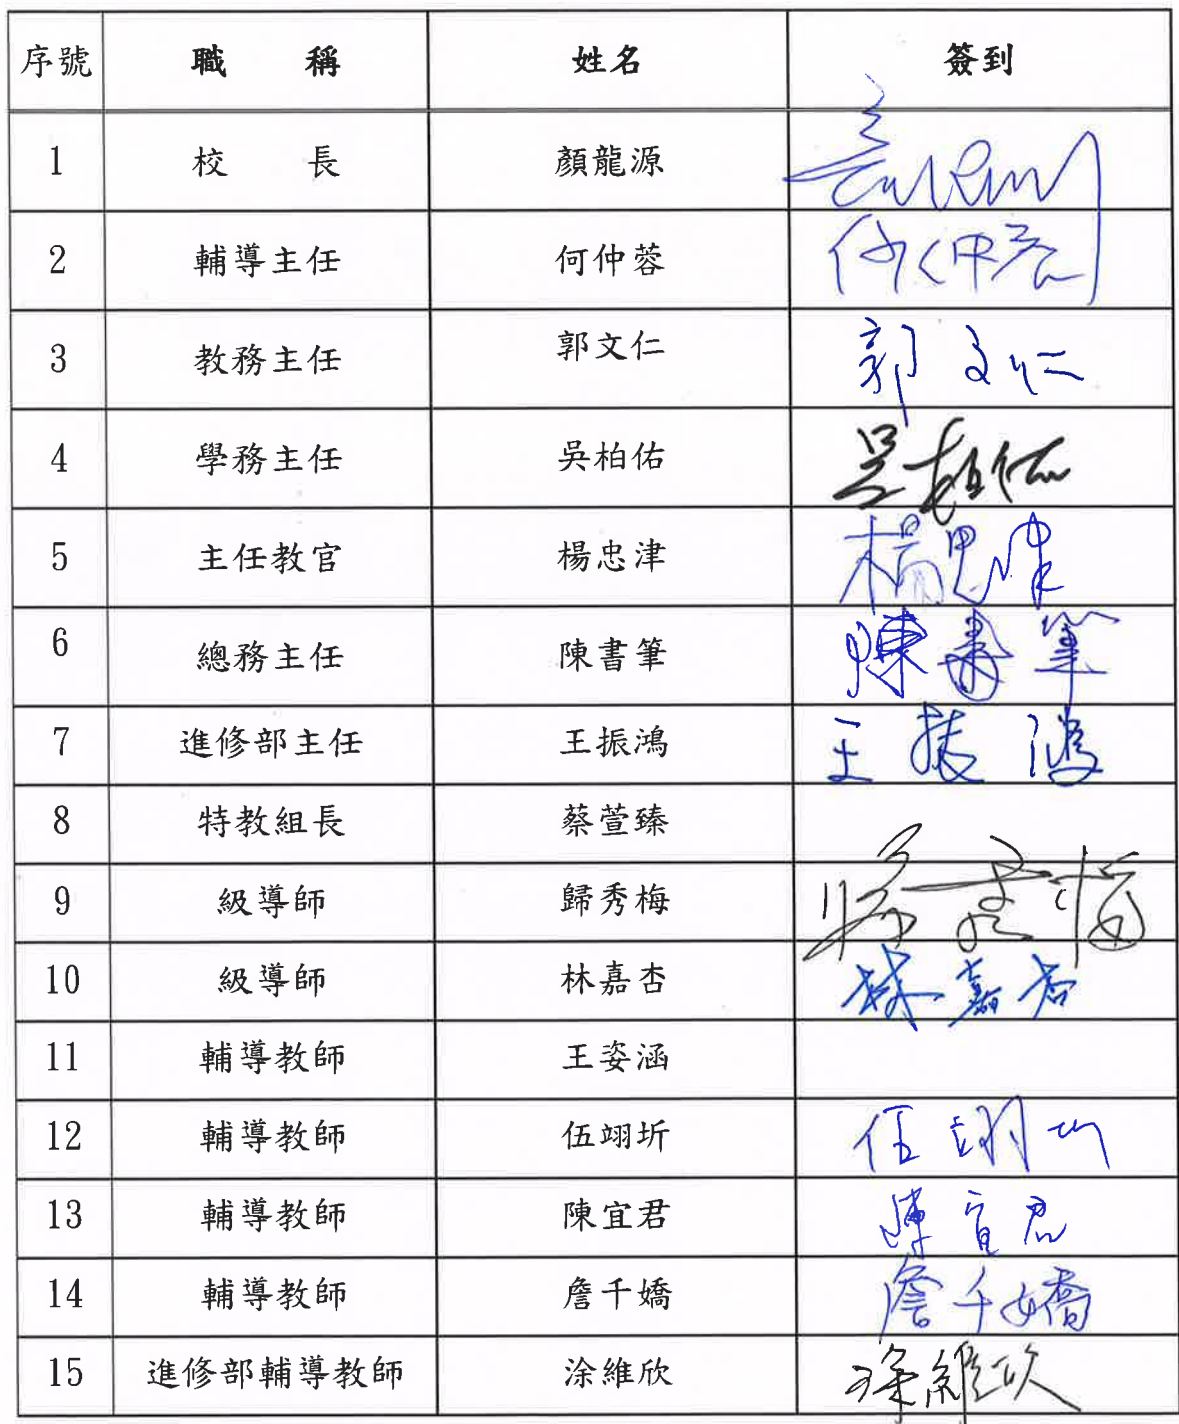 序號 職 稱 姓名 簽到
1 校 長 顏龍源
2 輔導主任 何仲蓉 何仲蓉
3 教務主任 郭文仁 郭文仁
4 學務主任 吳柏佑 吳柏佑
5 主任教官 楊忠津 楊忠津
6 總務主任 陳書筆 陳書筆
7 進修部主任 王振鴻 王振鴻
8 特教組長 蔡萱臻
9 級導師 歸秀梅 歸秀梅
10 級導師 林嘉杏 林嘉杏
11 輔導教師 王姿涵
12 輔導教師 伍翊圻 伍翊圻
13 輔導教師 陳宜君 陳宜君
14 輔導教師 詹千嬌 詹千嬌
15 進修部輔導教師 涂維欣 涂維欣